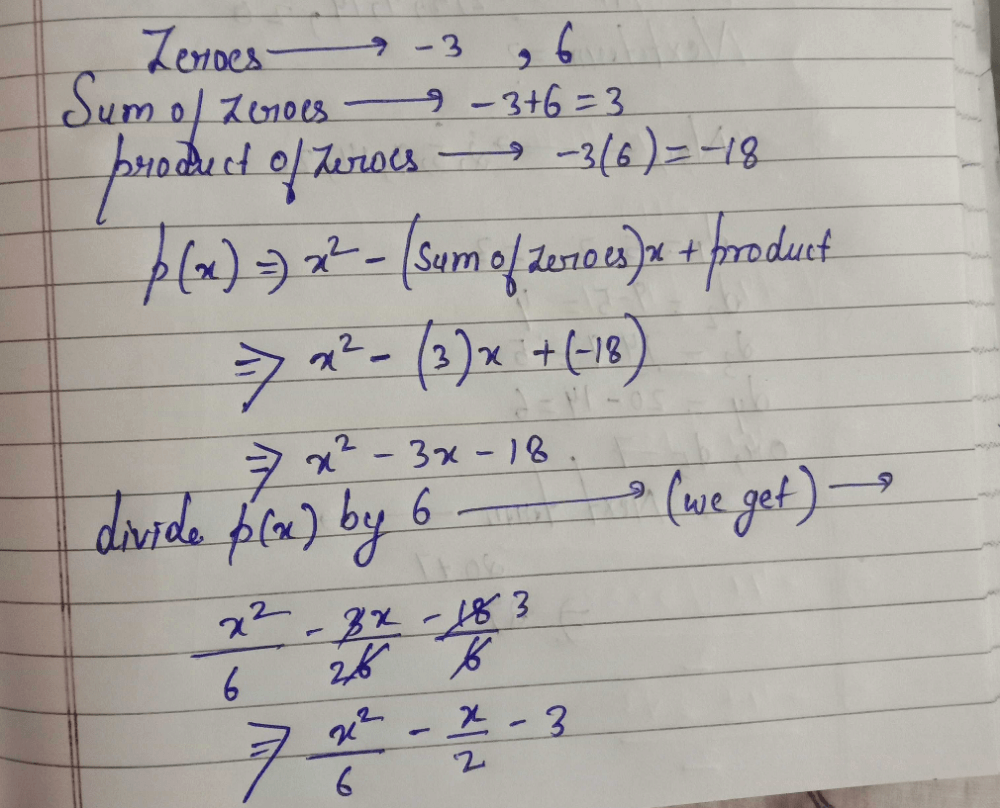 Zeroes → -3 , 6
Sum of zeroes → -3+6 = 3
product of zeroes → -3(6) = -18
p(x) ⇒ x² - (Sum of zeroes)x + product
⇒ x² - (3)x + (-18)
⇒ x² - 3x - 18
divide p(x) by 6 → (we get) →
x²/6 - 3x/26 - 18 3/6
⇒ x²/6 - x/2 - 3